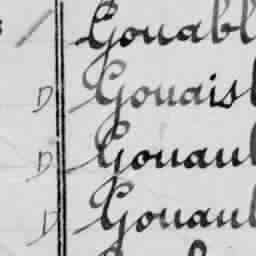 Gouabl
D Gouaisl
D Gouaul
D Gouaul